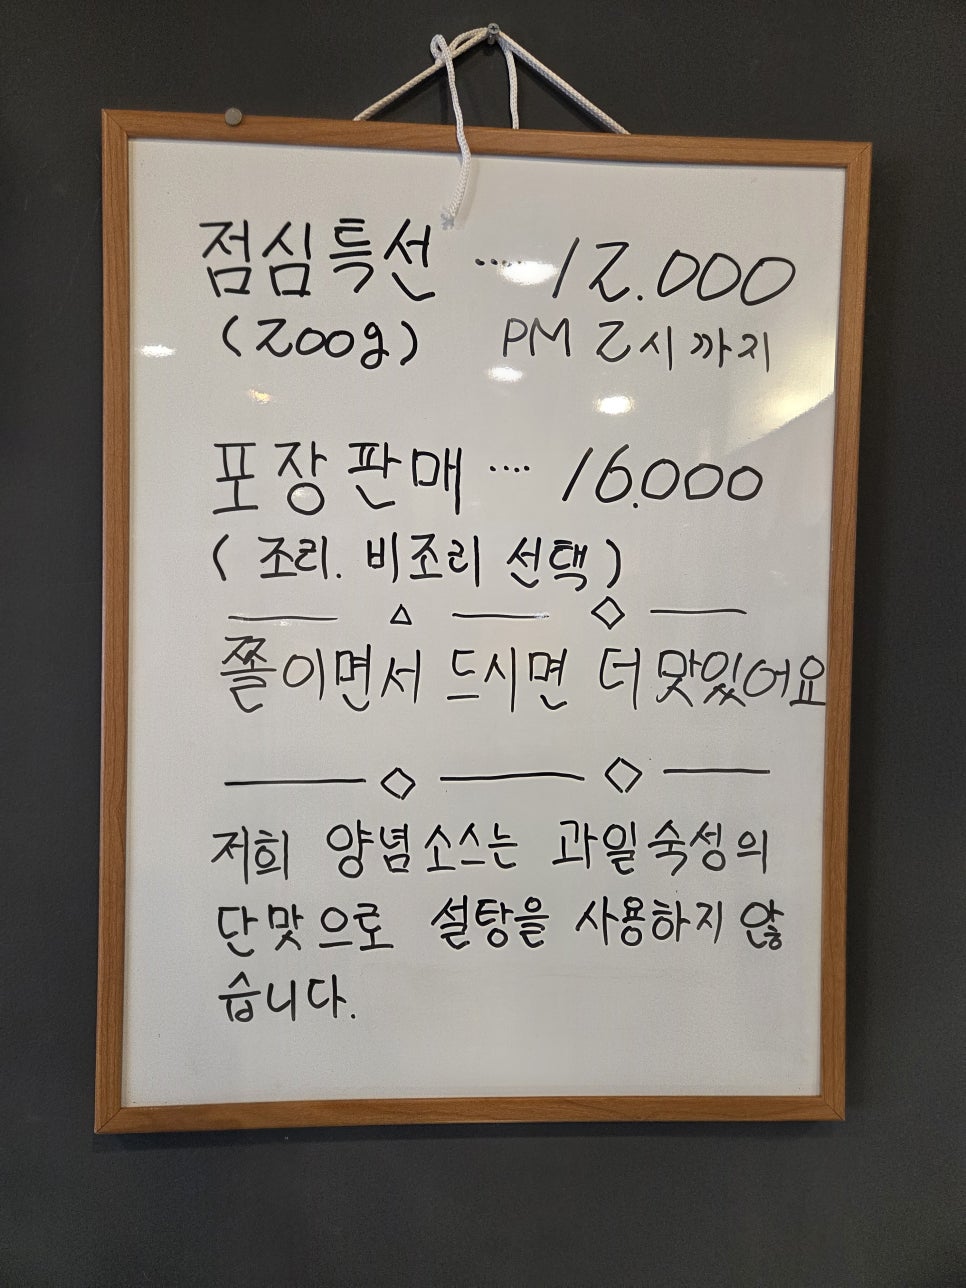 점심특선 ····· 12.000
(200g) PM 2시까지
포장판매 ···· 16.000
( 조리. 비조리 선택 )
쫄이면서 드시면 더 맛있어요
저희 양념소스는 과일숙성의
단맛으로 설탕을 사용하지 않
습니다.